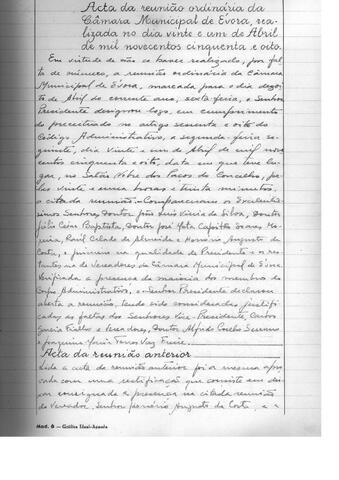 Acta da reunião ordinária da
Câmara Municipal de Évora, rea-
lizada no dia vinte e um de Abril
de mil novecentos cinquenta e oito.
Em virtude de não se haver realizado, por fal
ta de número, a reunião ordinária da Câmara
Municipal de Évora, marcada para o dia dezoi
to de Abril do corrente ano, sexta-feira, o Senhor
Presidente designou logo, em cumprimento
do preceituado no artigo sessenta e oito do
Código Administrativo, a segunda-feira se-
guinte, dia vinte e um de Abril de mil nove
centos cinquenta e oito, data em que teve lu-
gar, no Salão Nobre dos Paços do Concelho, pe-
las vinte e uma horas e trinta minutos,
a citada reunião. Compareceram os Excelentís-
simos Senhores, Doutor da Silva, Doutor
Júlio César Baptista, Doutor José
Raúl de Almeida e Augusto da
Costa, o primeiro na qualidade de Presidente e os res
tantes na de Vereadores da Câmara Municipal de Évora.
Verificada a presença da maioria dos membros do
Corpo Administrativo, o Senhor Presidente declarou
aberta a reunião, tendo sido consideradas justifi-
cadas as faltas dos Senhores Vice-Presidente, Carlos
e Vereadores, Doutor Alfredo Coelho
e Joaquim Vaz Freire.
Acta da reunião anterior
Lida a acta da reunião anterior foi a mesma apro
vada com uma rectificação que consiste em dei
xar consignada a presença na citada reunião
do Vereador, Senhor Augusto da Costa, e a
Mod. 6 — Gráfica Ideal-Águeda